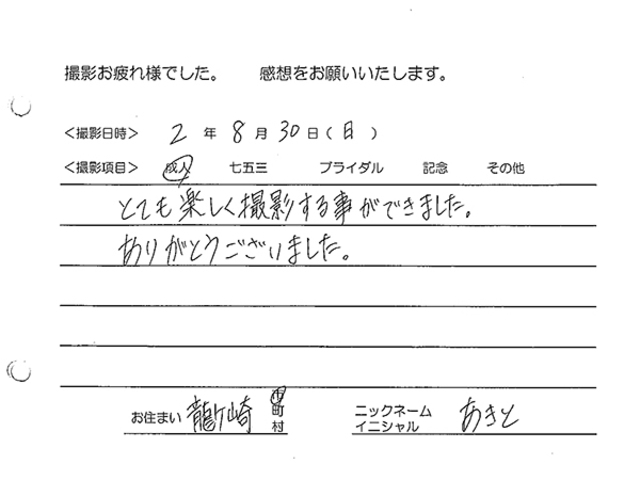 撮影お疲れ様でした。 感想をお願いいたします。
<撮影日時> 2 年 8 月 30 日 ( 日 )
<撮影項目> 成人 七五三 ブライダル 記念 その他
とても楽しく撮影する事ができました。
ありがとうございました。
お住まい 龍ケ崎 市町村 ニックネーム イニシャル あきと